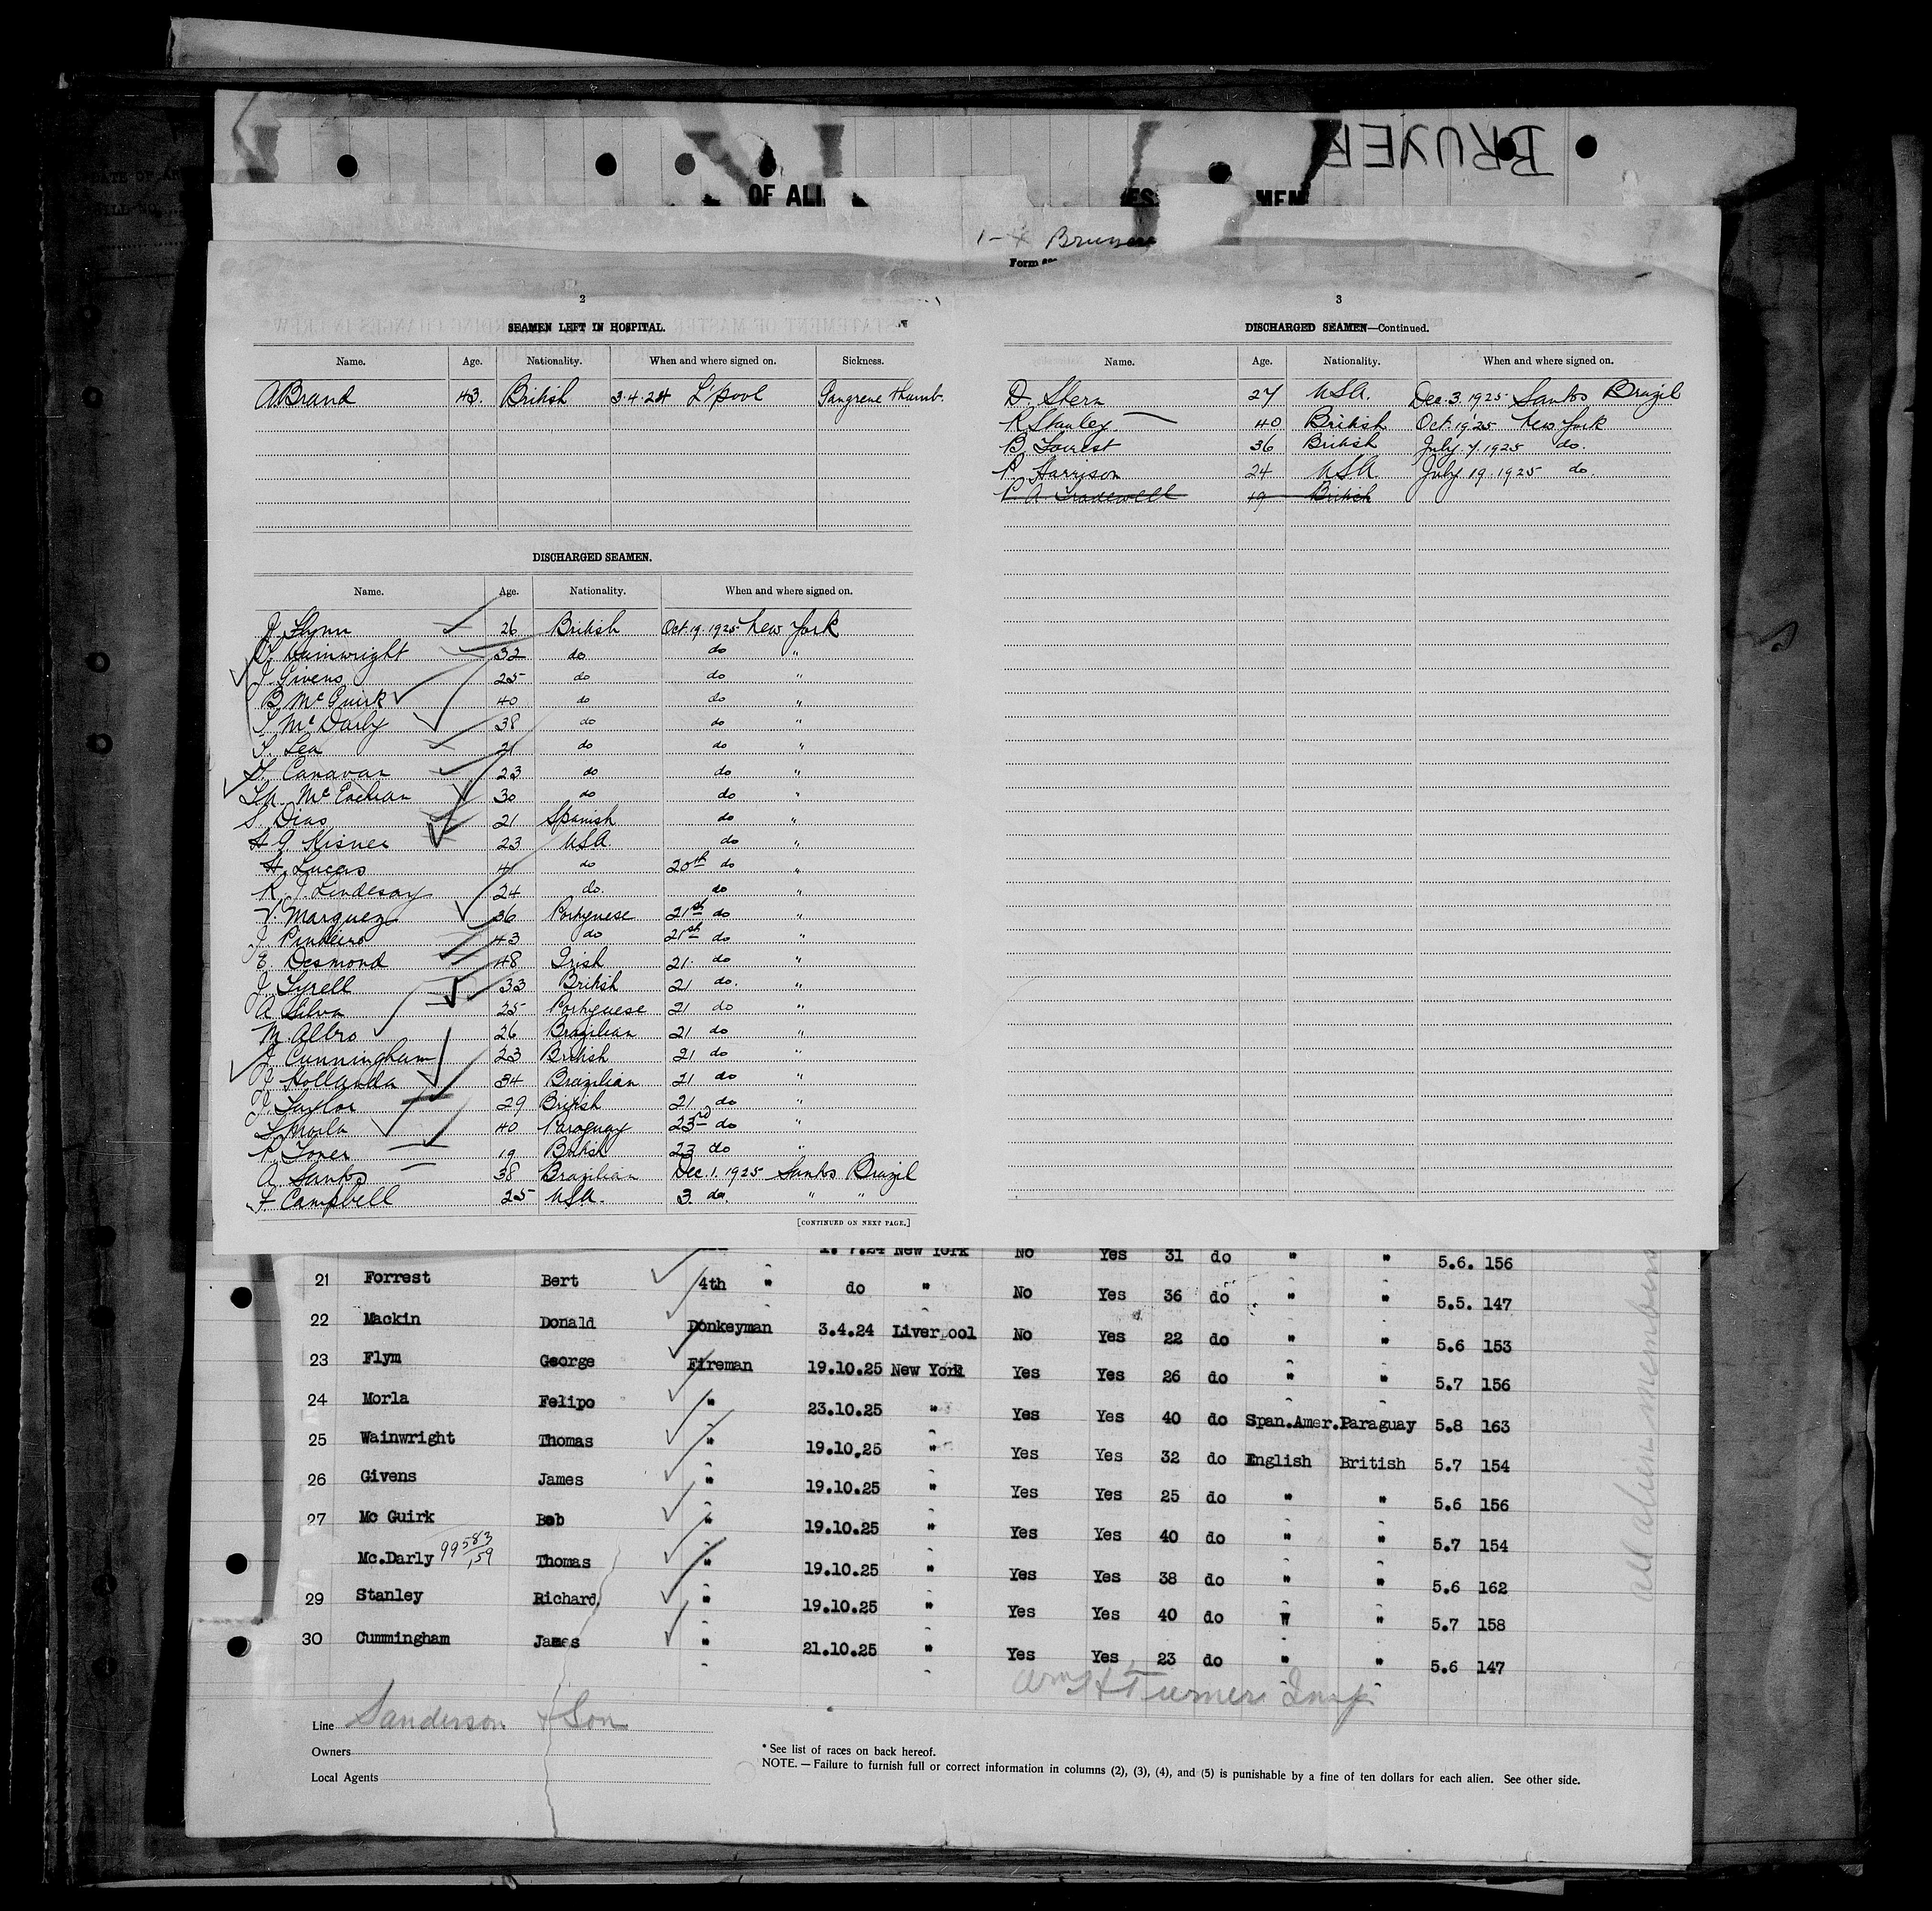 BRUYER
OF ALI ES MEN
1 - 4
Form
2
SEAMEN LEFT IN HOSPITAL.
Name. Age. Nationality. When and where signed on. Sickness.
A Brand 43. British 3.4.24 L'pool Gangrene thumb.
DISCHARGED SEAMEN.
Name. Age. Nationality. When and where signed on.
Flynn 26 British Oct. 19. 1925 New York
Wainwright 32 do do "
J. Givens 25 do do "
B Mc Guirk 40 do do "
T Mc Darly 38 do do "
T. Lea 21 do do "
Canavan 23 do do "
Mc Eachran 30 do do "
S. Dias 21 Spanish do "
H G Misner 23 USA do "
H. Lucas 41 do 20th do "
R. J. Lindesay 24 do. do "
V. Marquez 36 Portguese 21st do "
J. Pinheiro 43 do 21st do "
E. Desmond 48 Irish 21. do "
J. Tyrell 33 British 21 do. "
A Silva 25 Portguese 21 do "
M Albro 26 Brazilian 21 do "
J Cunningham 23 British 21 do "
J Hollanda 34 Brazilian 21 do "
J. Taylor 29 British 21 do "
Morla 40 Paraguay 23rd do "
P. Toner 19 British 23 do "
A Santos 38 Brazilian Dec. 1. 1925 Santos Brazil
F Campbell 25 USA. 3. do. " "
[CONTINUED ON NEXT PAGE.]
3
DISCHARGED SEAMEN—Continued.
Name. Age. Nationality. When and where signed on.
D. Shern 27 USA. Dec. 3. 1925 Santos Brazil
R Stanley 40 British Oct. 19 25 New York
B. Forrest 36 British July. 7. 1925 do.
P. Harrison 24 USA July 19. 1925 do.
P A Tradewell 19 British
1. 7.24 New York No Yes 31 do " " 5.6. 156
21 Forrest Bert 4th " do " No Yes 36 do " " 5.5. 147
22 Mackin Donald Donkeyman 3.4.24 Liverpool No Yes 22 do " " 5.6 153
23 Flym George Fireman 19.10.25 New York Yes Yes 26 do " " 5.7 156
24 Morla Felipo " 23.10.25 " Yes Yes 40 do Span.Amer. Paraguay 5.8 163
25 Wainwright Thomas " 19.10.25 " Yes Yes 32 do English British 5.7 154
26 Givens James " 19.10.25 " Yes Yes 25 do " " 5.6 156
27 Mc Guirk Bob " 19.10.25 " Yes Yes 40 do " " 5.7 154
Mc.Darly 99583/159 Thomas " 19.10.25 " Yes Yes 38 do " " 5.6 162
29 Stanley Richard " 19.10.25 " Yes Yes 40 do " " 5.7 158
30 Cummingham James " 21.10.25 " Yes Yes 23 do " " 5.6 147
Wm H Turner Insp
all alien members
Line Sanderson & Son
Owners
Local Agents
* See list of races on back hereof.
NOTE.—Failure to furnish full or correct information in columns (2), (3), (4), and (5) is punishable by a fine of ten dollars for each alien. See other side.